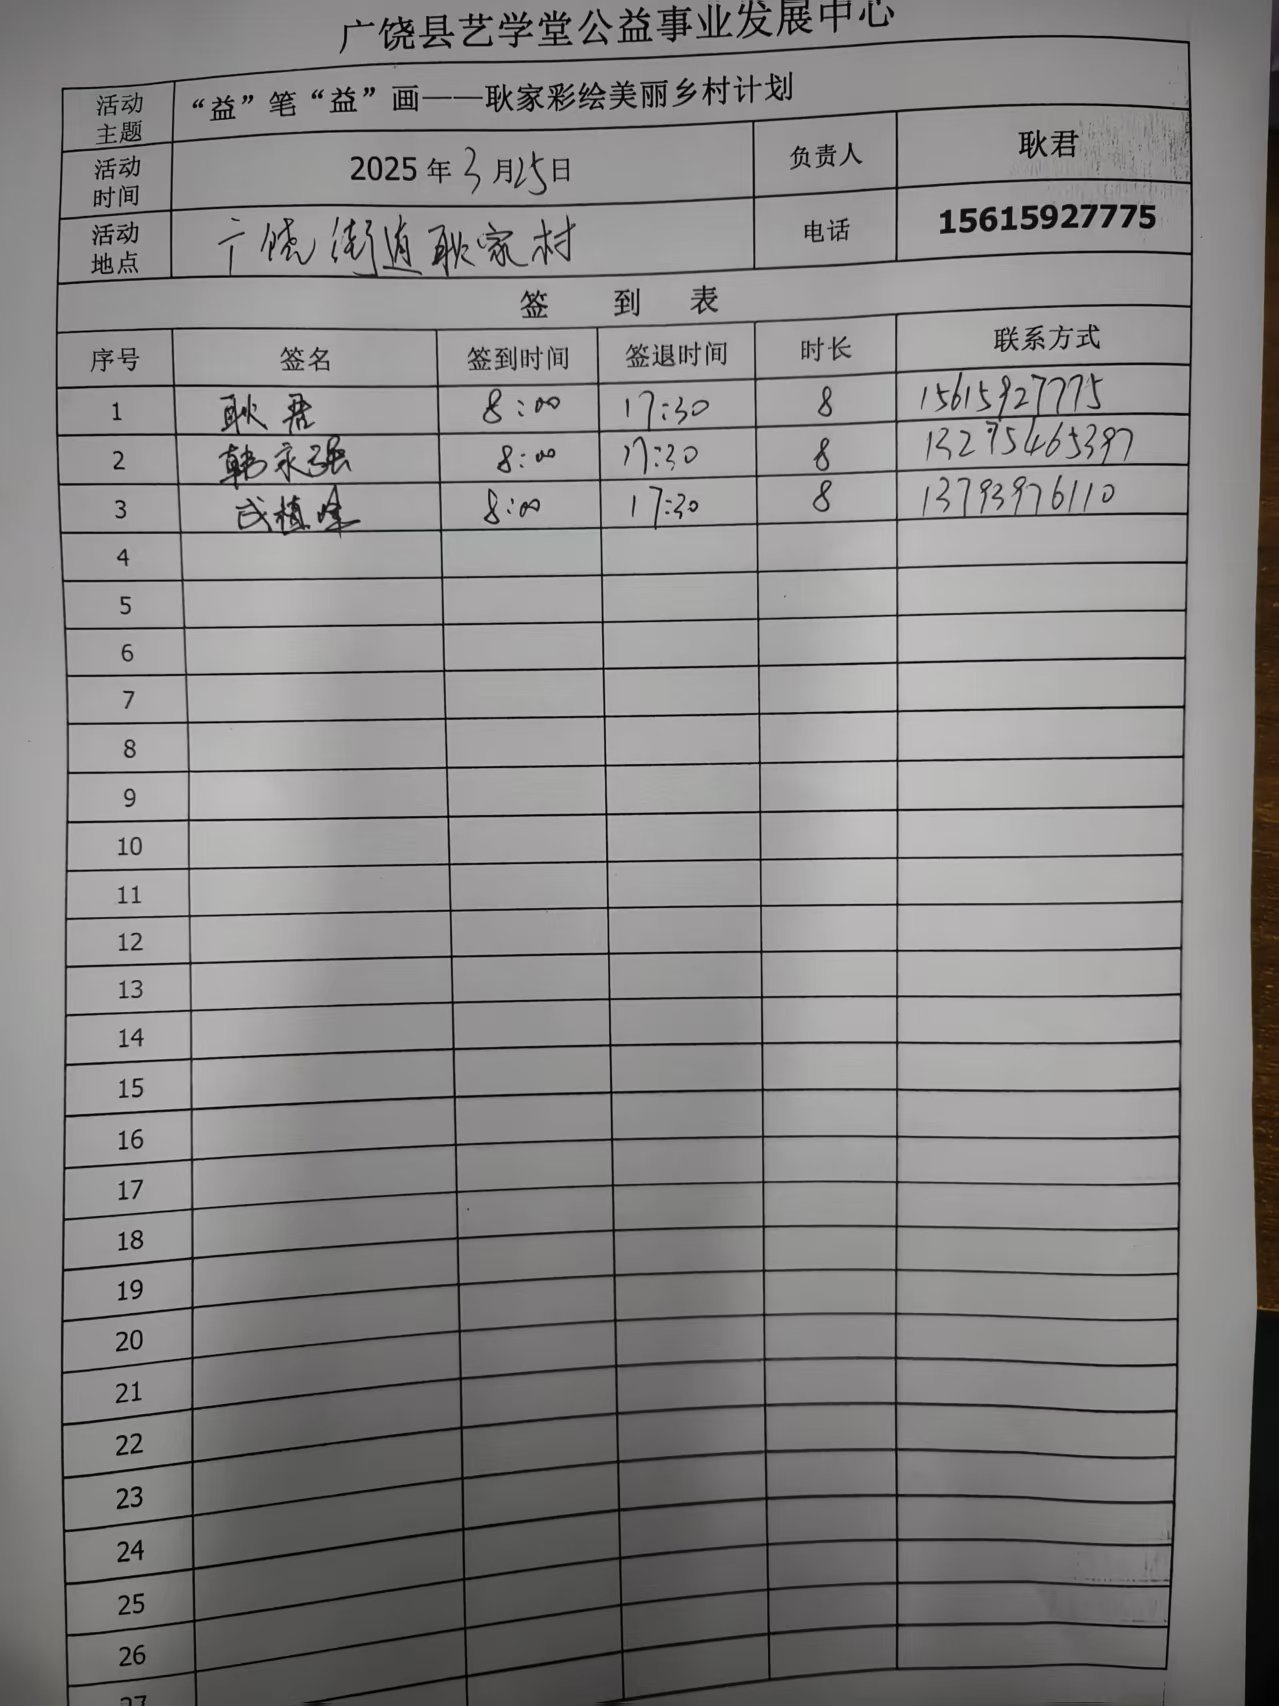 广饶县艺学堂公益事业发展中心
活动主题 “益”笔“益”画——耿家彩绘美丽乡村计划
活动时间 2025年3月25日 负责人 耿君
活动地点 广饶街道耿家村 电话 15615927775
签 到 表
序号 签名 签到时间 签退时间 时长 联系方式
1 耿君 8:00 17:30 8 15615927775
2 韩永强 8:00 17:30 8 13295465397
3 成植 8:00 17:30 8 13793976110
4
5
6
7
8
9
10
11
12
13
14
15
16
17
18
19
20
21
22
23
24
25
26
27